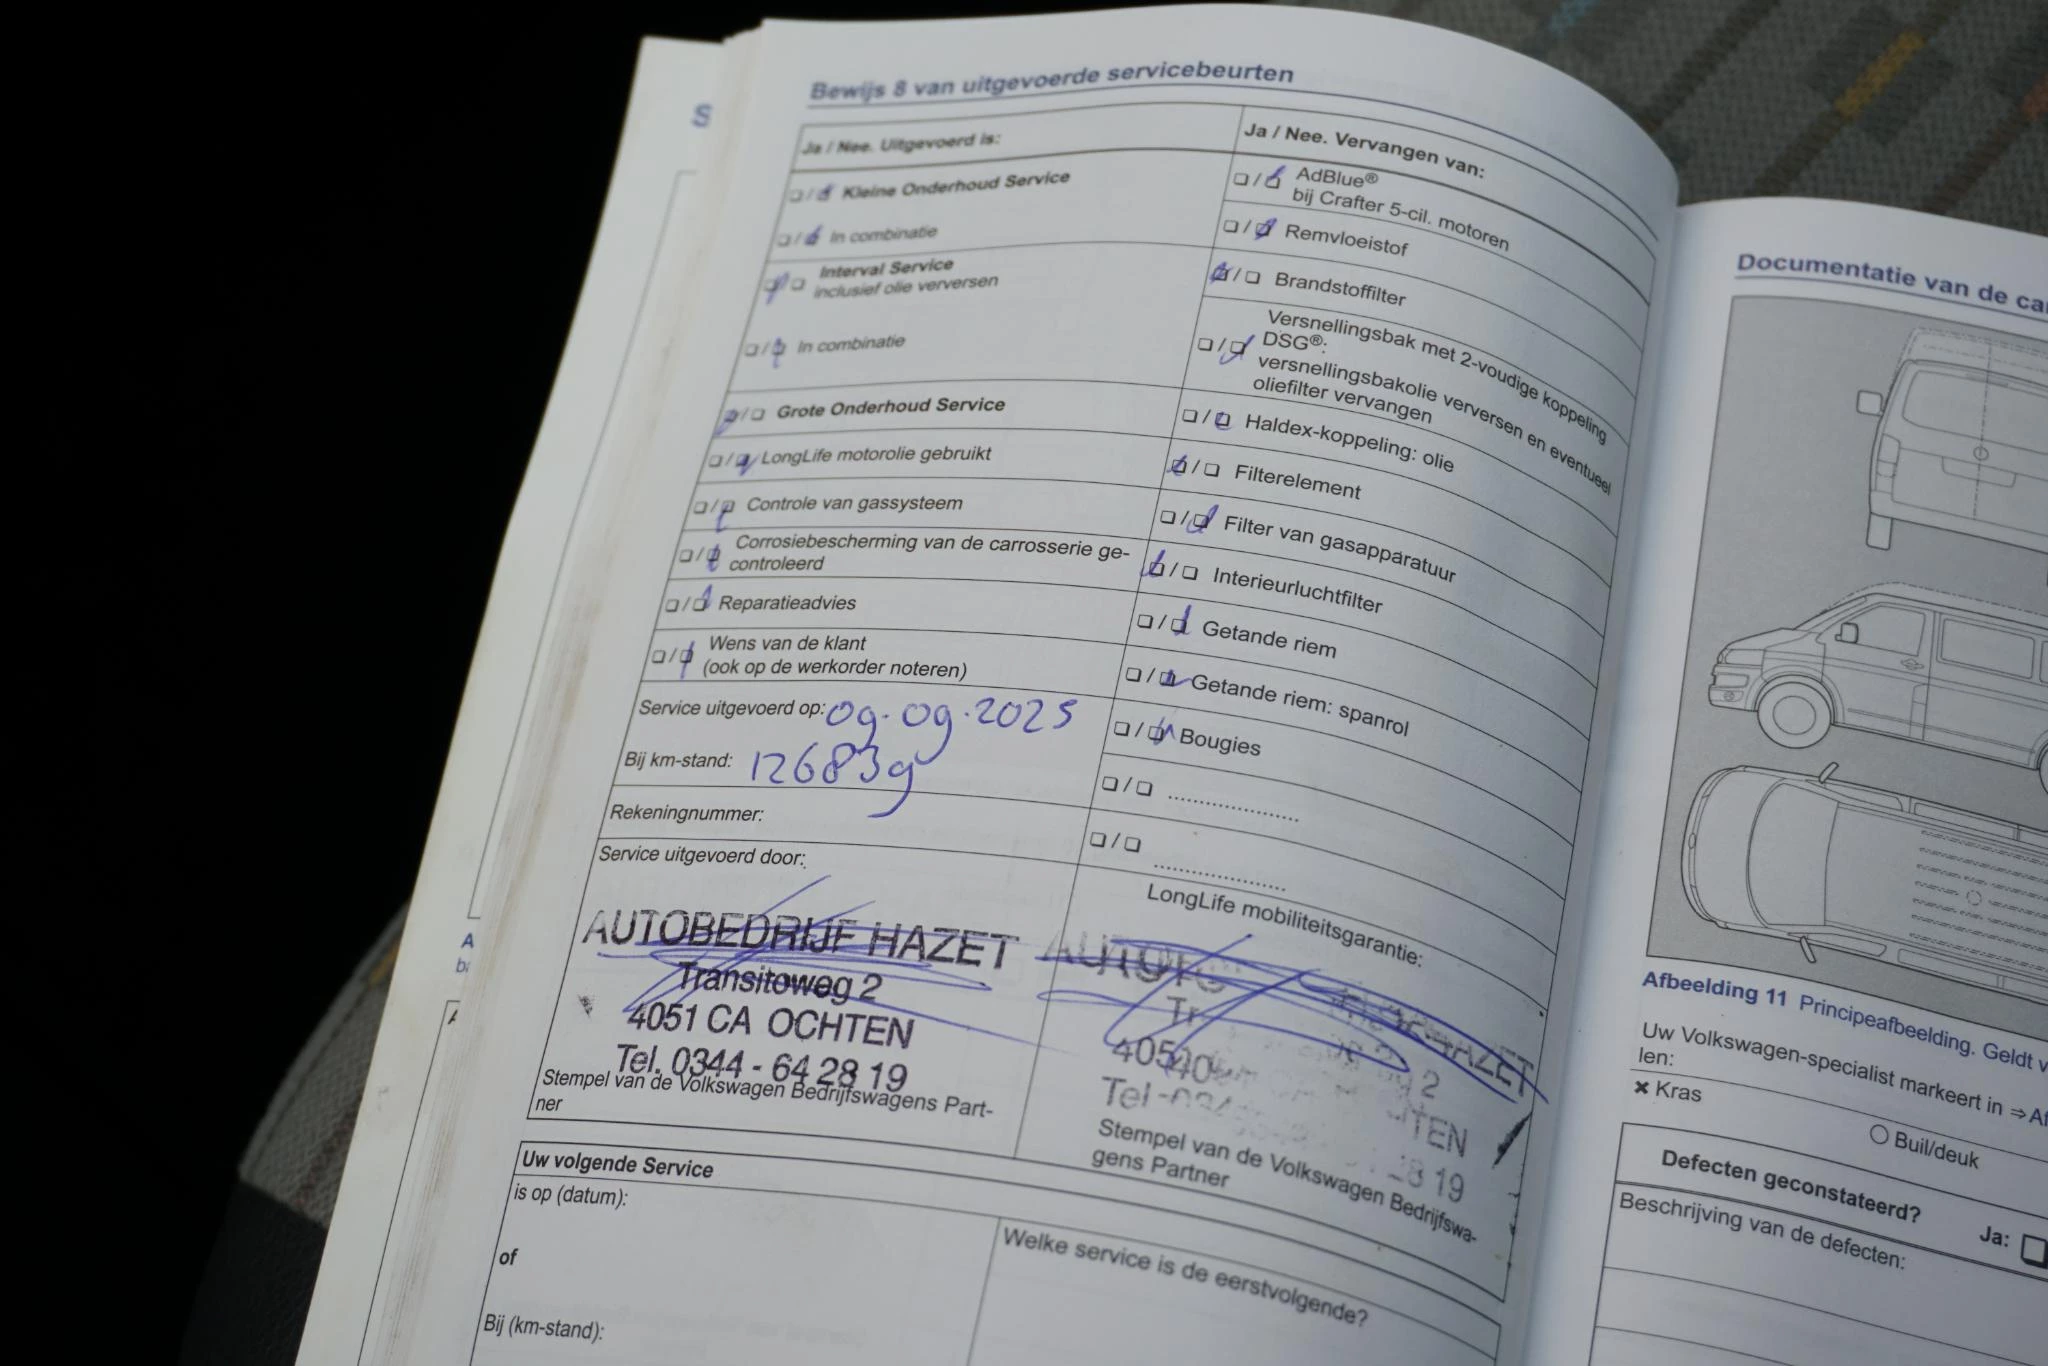 S
Bewijs 8 van uitgevoerde servicebeurten
Ja / Nee. Uitgevoerd is:
Kleine Onderhoud Service
In combinatie
Interval Service
inclusief olie verversen
In combinatie
Grote Onderhoud Service
LongLife motorolie gebruikt
Controle van gassysteem
Corrosiebescherming van de carrosserie ge-
controleerd
Reparatieadvies
Wens van de klant
(ook op de werkorder noteren)
Service uitgevoerd op: 09.09.2025
Bij km-stand: 126839
Rekeningnummer:
Service uitgevoerd door:
AUTOBEDRIJF HAZET
Transitoweg 2
4051 CA OCHTEN
Tel. 0344 - 64 28 19
Stempel van de Volkswagen Bedrijfswagens Part-
ner
Ja / Nee. Vervangen van:
AdBlue®
bij Crafter 5-cil. motoren
Remvloeistof
Brandstoffilter
Versnellingsbak met 2-voudige koppeling
DSG®:
versnellingsbakolie verversen en eventueel
oliefilter vervangen
Haldex-koppeling: olie
Filterelement
Filter van gasapparatuur
Interieurluchtfilter
Getande riem
Getande riem: spanrol
Bougies
LongLife mobiliteitsgarantie:
HAZET
2
TEN
Tel
19
Stempel van de Volkswagen Bedrijfswa-
gens Partner
Uw volgende Service
is op (datum):
of
Bij (km-stand):
Welke service is de eerstvolgende?
Documentatie van de ca
Afbeelding 11 Principeafbeelding. Geldt v
Uw Volkswagen-specialist markeert in ⇒ Af
len:
× Kras
Buil/deuk
Defecten geconstateerd?
Ja:
Beschrijving van de defecten: